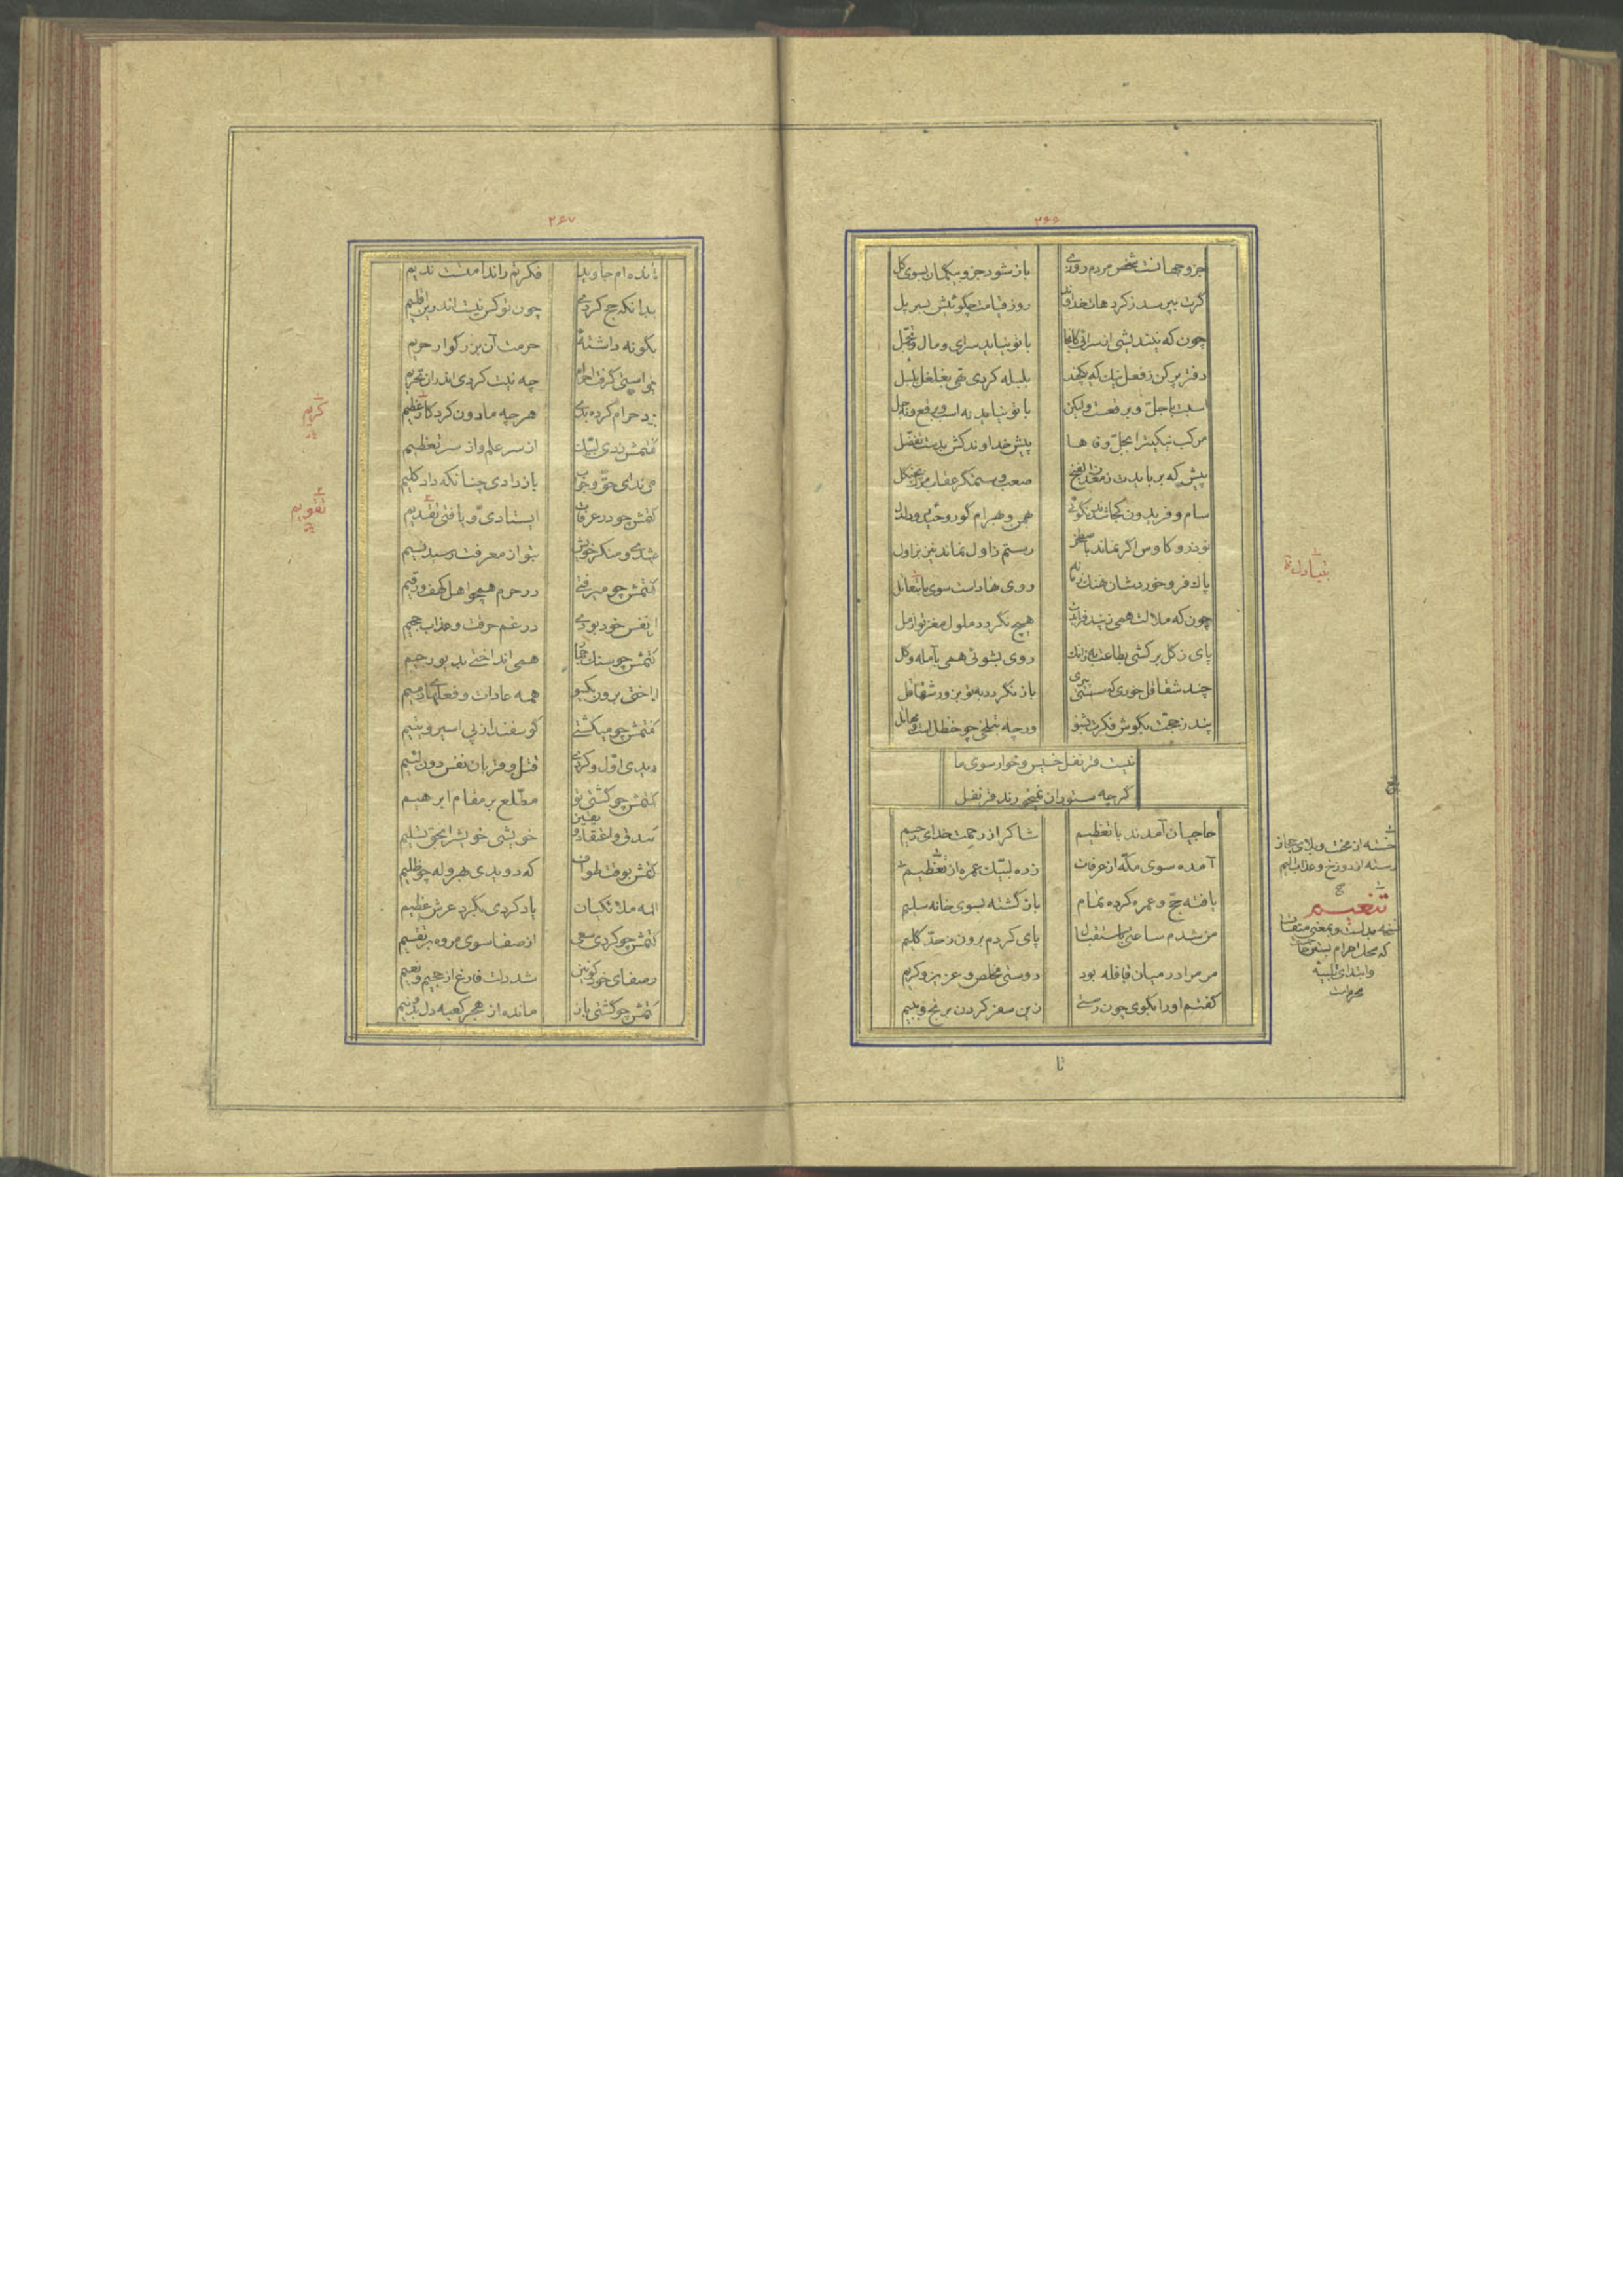 ۲۶۵
جزو جهانست شخص مردم روزی
باز شود جزو بیگمان بسوی کل
گرت بپرسد ز کردهات خداوند
روز قیامت چگوئیش بسر پل
با تو نیاید سرای و مال و تجمل
دفتر پر کن ز فعل نیک که یکچند
بلبله کردی تهی بغلغل بلبل
اسبت با جل و برقعست ولیکن
با تو نیاید نه اسب و برقع و نه جل
مرکب نیکیت را بجل وفاها
پیش خداوند کش بدست تفضل
سام و فریدون کجا شدند نگوئی
بهمن و بهرام گور و
نوذر و کاوس اگر نماند باصطخر
رستم زاول نماند نیز بزاول
پاک فرو خوردشان نهنگ زمانه
روی نهاداست سوی ما بتعاتل
چون که ملالت همی ز پند فزایدت
هیچ نگردد ملول مغز تو از مل
پای ز گل برکشی بطاعت به زانک
روی بشوئی همی بآمله و گل
چند شقاقل خوری که سستی پیری
باز نگردد به تو بزور شقاقل
پند ز حجت بگوش فکرت بشنو
ورچه بتلخی چو حنظل است
نیست قرنفل خسیس و خوار سوی ما
گرچه ستوران نمیخورند قرنفل
حاجیان آمدند با تعظیم
شاکر از رحمت خدای رحیم
آمده سوی مکه از عرفات
زده لبیک عمره از تعظیم
یافته حج و عمره کرده تمام
باز گشته بسوی خانه سلیم
من شدم ساعتی باستقبال
پای کردم برون ز حد گلیم
مر مرا در میان قافله بود
دوستی مخلص و عزیز و کریم
گفتم او را بگوی چون رستی
زین سفر کردن برنج و ببیم
خسته از محنت و بلای حجاز
رسته از دوزخ و عذاب الیم
تنعیم
تا
۲۶۷
مانده‌ام جاوید
فکرتم را ندامتست ندیم
بدانکه حج کردی
چون تو کس نیست اندرین اقلیم
بگو نه داشته‌ٔ
حرمت آن بزرگوار حریم
چه نیت کردی اندران تحریم
حرام کرده بدی
هر چه مادون کردگار عظیم
گفتمش زدی لبیک
از سر علم و از سر تعظیم
باز دادی چنانکه داد کلیم
گفتمش چو در عرفات
ایستادی و یافتی تقدیم
بتو از معرفت رسید نسیم
گفتمش چو میرفتی
در حرم همچو اهل کهف و رقیم
نفس خود بودی
در غم حرقت و عذاب جحیم
گفتمش چو سنگ جمار
همی انداختی بدیو رجیم
انداختی برون یکسو
همه عادات و فعلهای ذمیم
گفتمش چو میکشتی
گوسفند از پی اسیر و یتیم
دیدی اول و کردی
قتل و قربان نفس دون لئیم
گفتمش چو گشتی تو
مطلع بر مقام ابرهیم
صدق و اعتقاد و یقین
خویشی خویش را بحق تسلیم
گفتمش بوقت طواف
که دویدی بهروله چو ظلیم
همه ملائکیان
یاد کردی بگرد عرش عظیم
گفتمش چو کردی سعی
از صفا سوی مروه بر تقسیم
شد دلت فارغ از جحیم و نعیم
گفتمش چو گشتی باز
مانده از هجر کعبه دل بدو نیم
کریم
تقویم